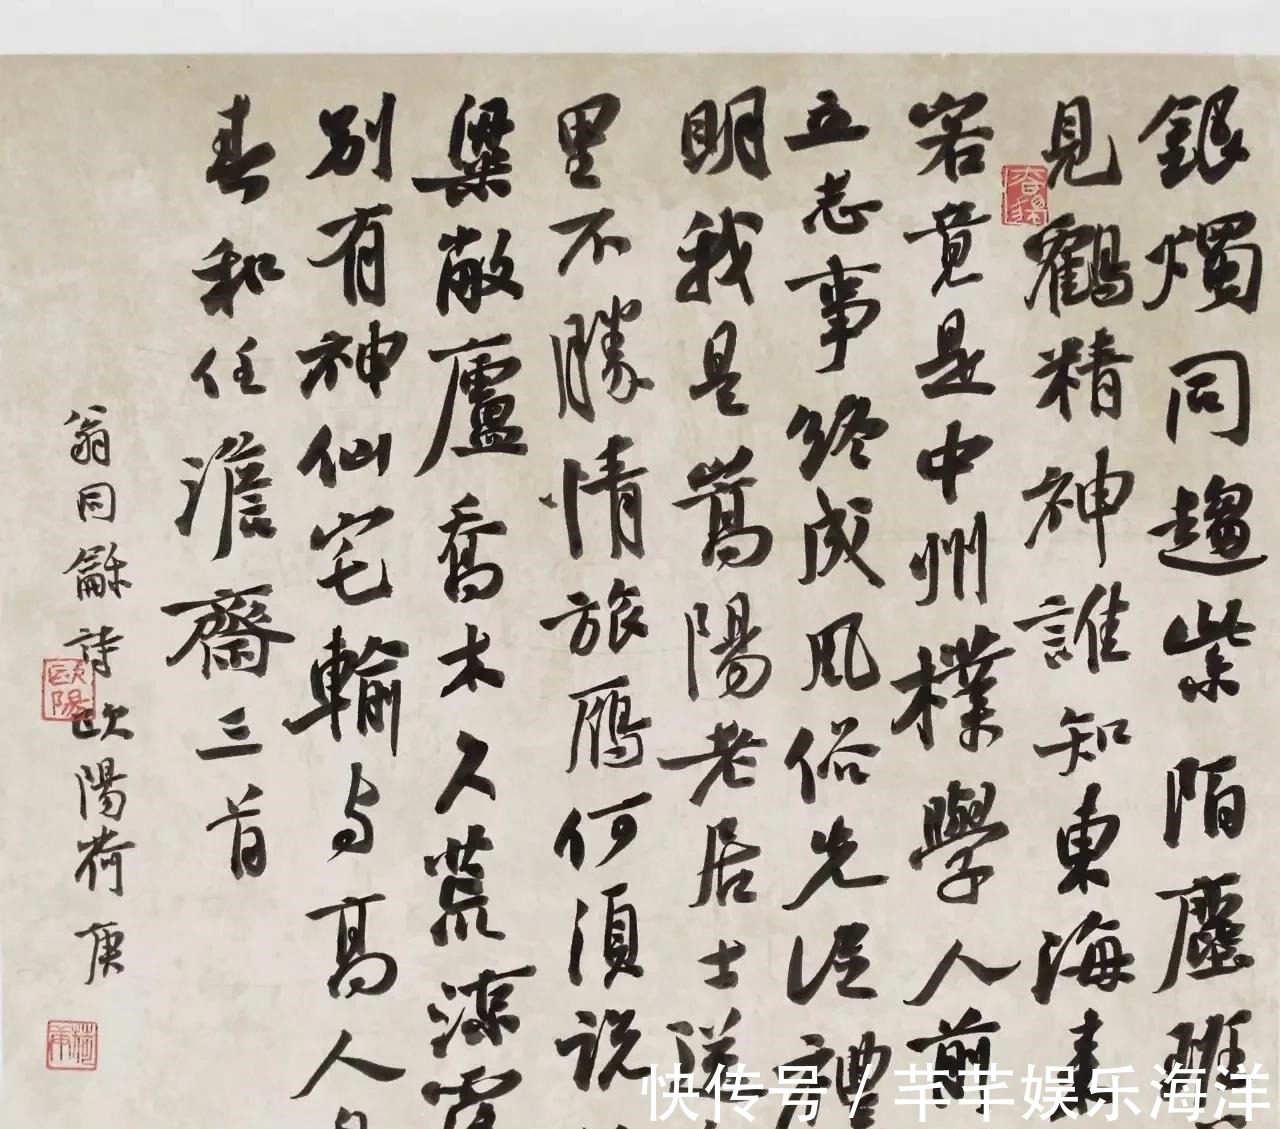 銀燭同趨紫陌塵班
見鶴精神誰知東海
客竟是中州樸學人前
立志事終成風俗先從禮
明我是嵩陽老居士送
里不勝情旅雁何須說
梁敝廬喬木久荒涼
別有神仙宅輸與高人
春和任澹齋三首
翁同龢詩歐陽荷庚
歐陽
荷庚
快传号 / 芊芊娱乐海洋